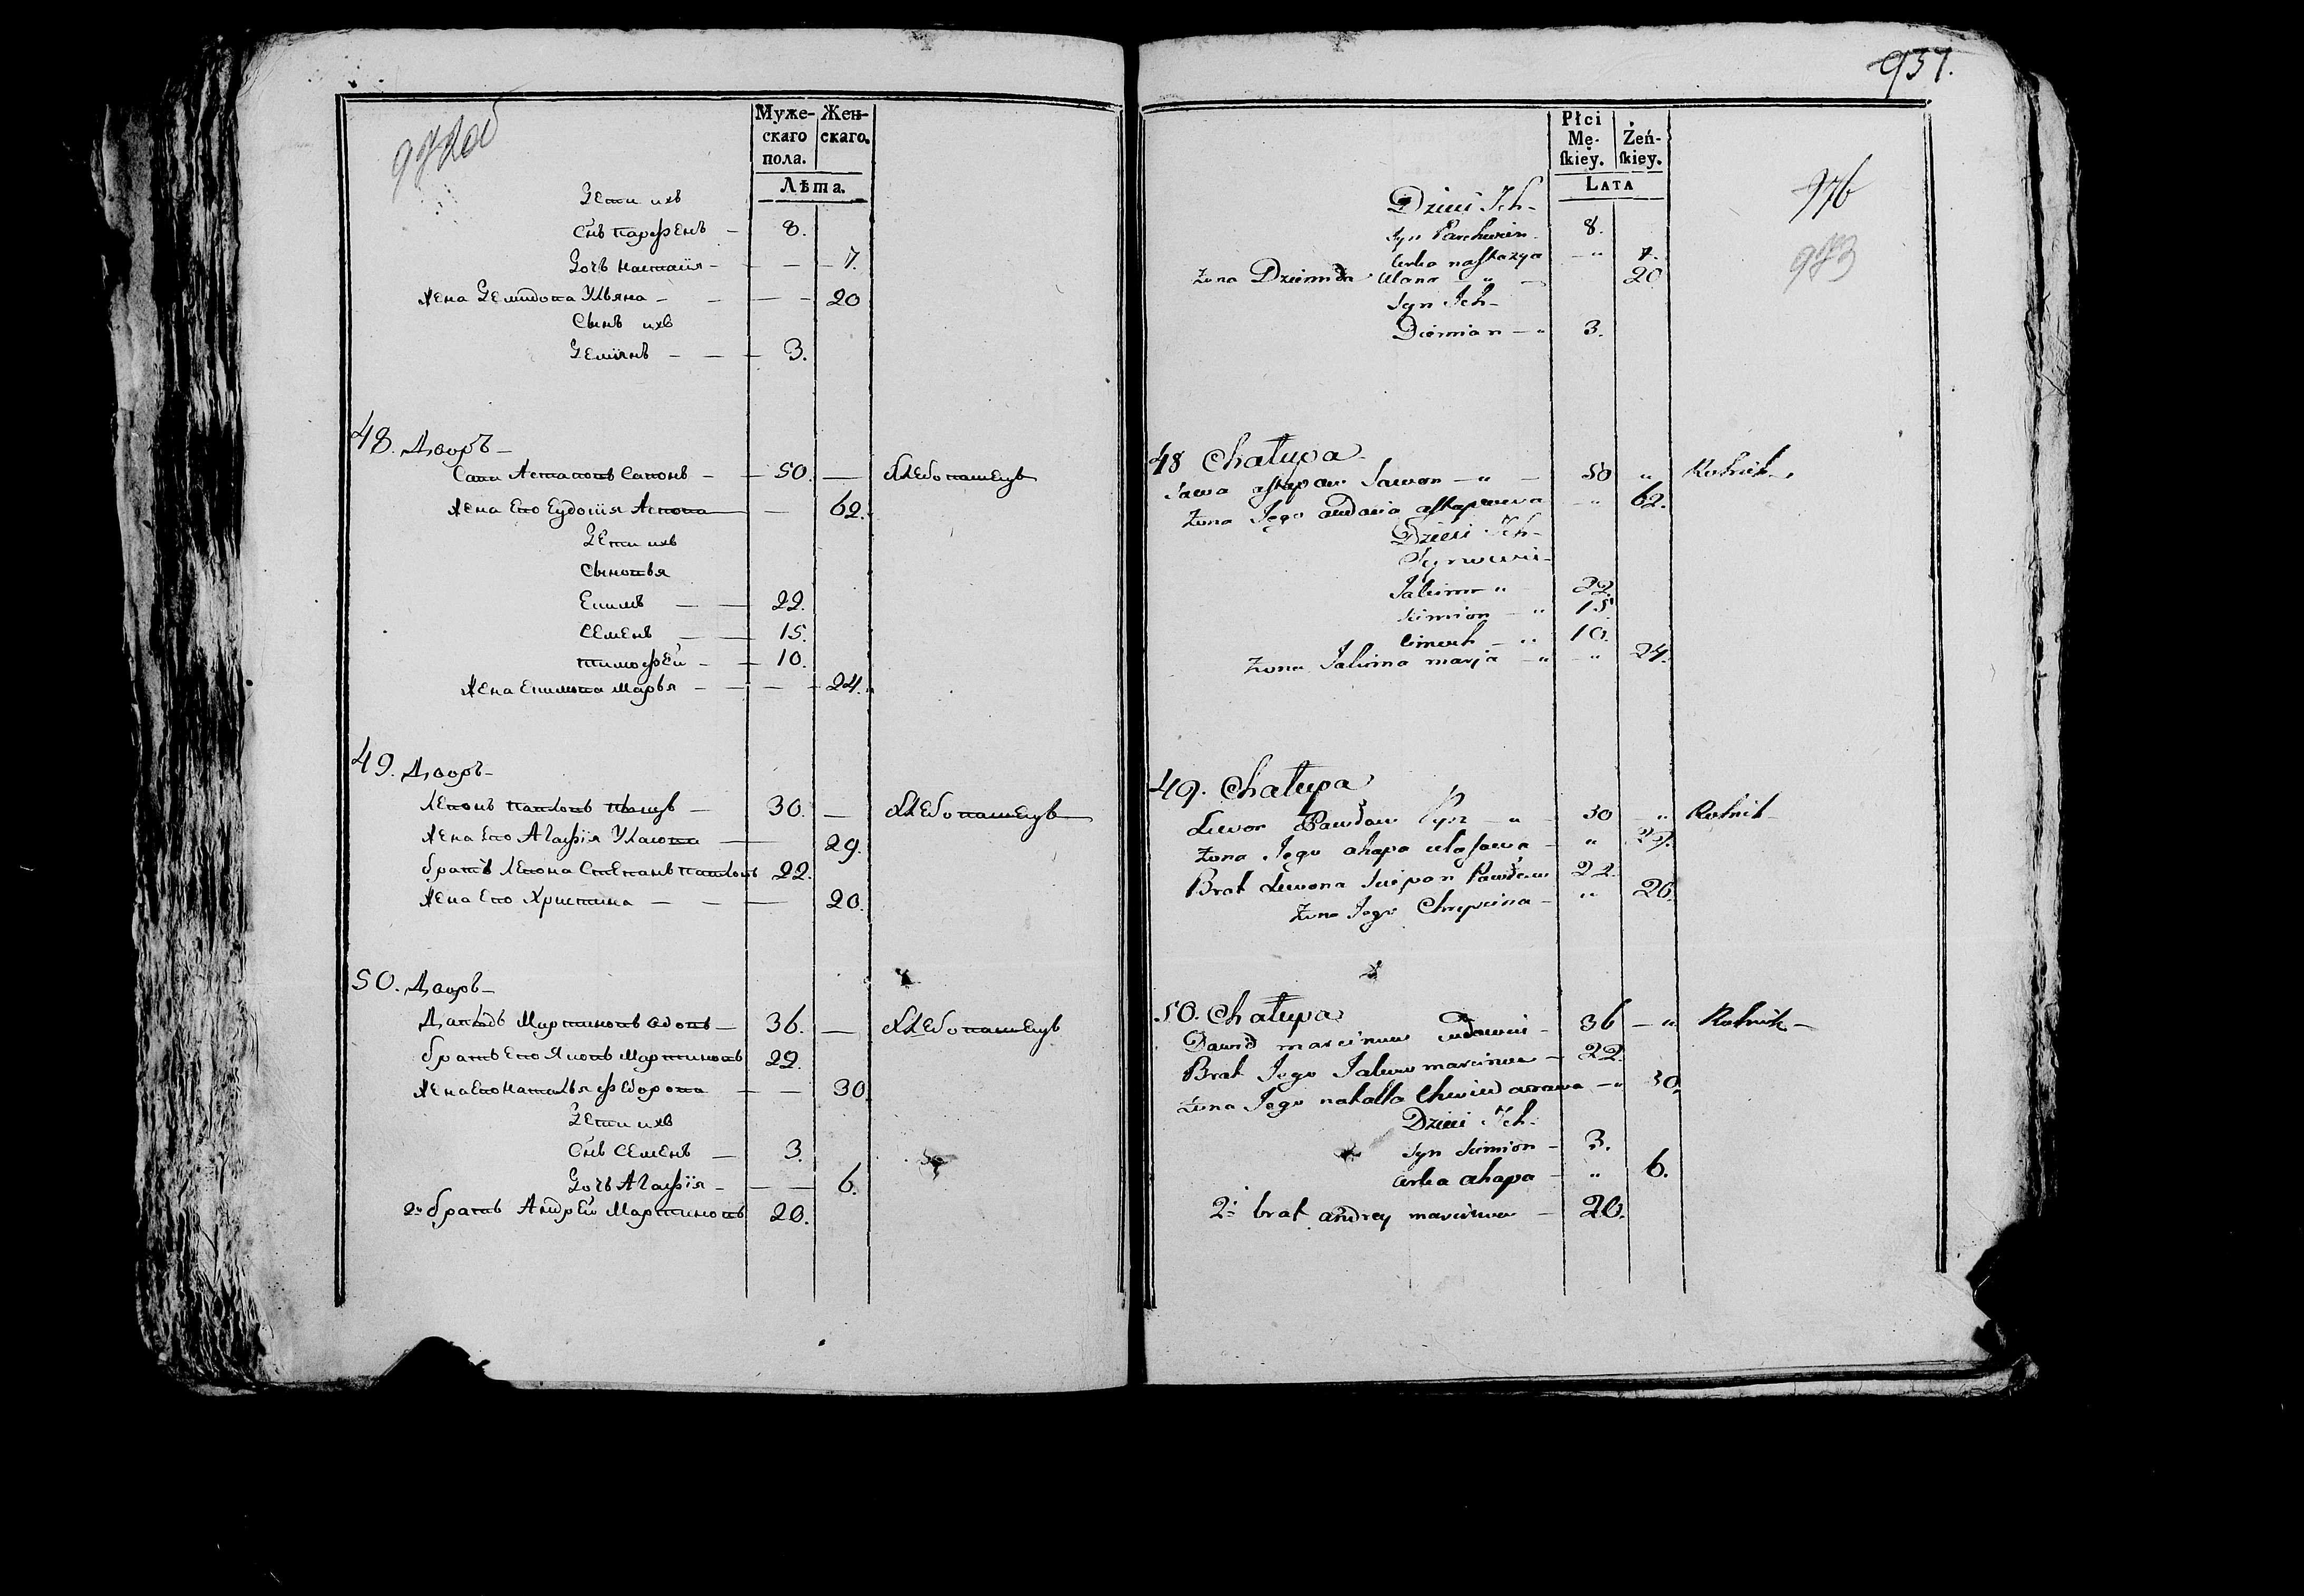 972об
Муже- Жен-
скаго скаго.
пола.
Лѣта.
Дети ихъ
Снъ Парфенъ — 8.
Дочъ Настасiя — — 7.
Жена Демидова Ульяна — — 20
Сынъ ихъ
Демiянъ — — 3.
48. Дворъ —
Сава Астаповъ Савонъ — 50. — Хлебопашецъ
Жена Ево Еудосiя Аспова — 62.
Дети ихъ
Сыновья
Екимъ — — 22.
Семенъ — — 15.
Тимофей — — 10.
Жена Екимова Марья — — — 24.
49. Дворъ —
Левонъ Павловъ Пыцъ — 30. — Хлебопашецъ
Жена Ево Агафiя Уласова — 29.
братъ Левона Степанъ Павловъ 22.
Жена Ево Христина — — — 20.
50. Дворъ —
Давыдъ Мартиновъ — 36. — Хлебопашецъ
братъ Ево Яковъ Мартиновъ 22.
Жена Ево Наталья Федорова — — 30.
Дети ихъ
Снъ Семенъ — 3.
Дочъ Агафiя — — — 6.
2й братъ Андрей Мартиновъ 20.
937.
Płci
Mę- Żeń-
skiey. skiey.
LATA
976
973
Dzieci Ich —
Syn Parchwien 8.
Corka nastazya — " 7.
Żona Dziemida Ulana — " — 20
Syn Ich —
Diemian — " 3.
48 Chałupa
Sawa astapow Sawon — " — 50 " Rolnik
Żona Jego audocia astapowa — " 62.
Dzieci Ich —
Synowie —
Jakim " 22.
Simion — " 15
Cimoch — " 10.
Żona Jakima marja — " — " 24.
49. Chałupa
Liwon Pawłow Pyc — " 30 " Rolnik
Żona Jego ahapa ułasowa — " 29.
Brat Liwona Sciepan Pawłow 22.
Żona Jego Chryscina — " 20.
50. Chałupa
Dawid marcinow — 36 — " Rolnik —
Brat Jego Jakow marcinow — 22.
Żona Jego natalla Chwiedarawa — " 30.
Dzieci Ich —
Syn Simion — 3.
Corka ahapa — " 6.
2i brat andrey marcinow — 20.